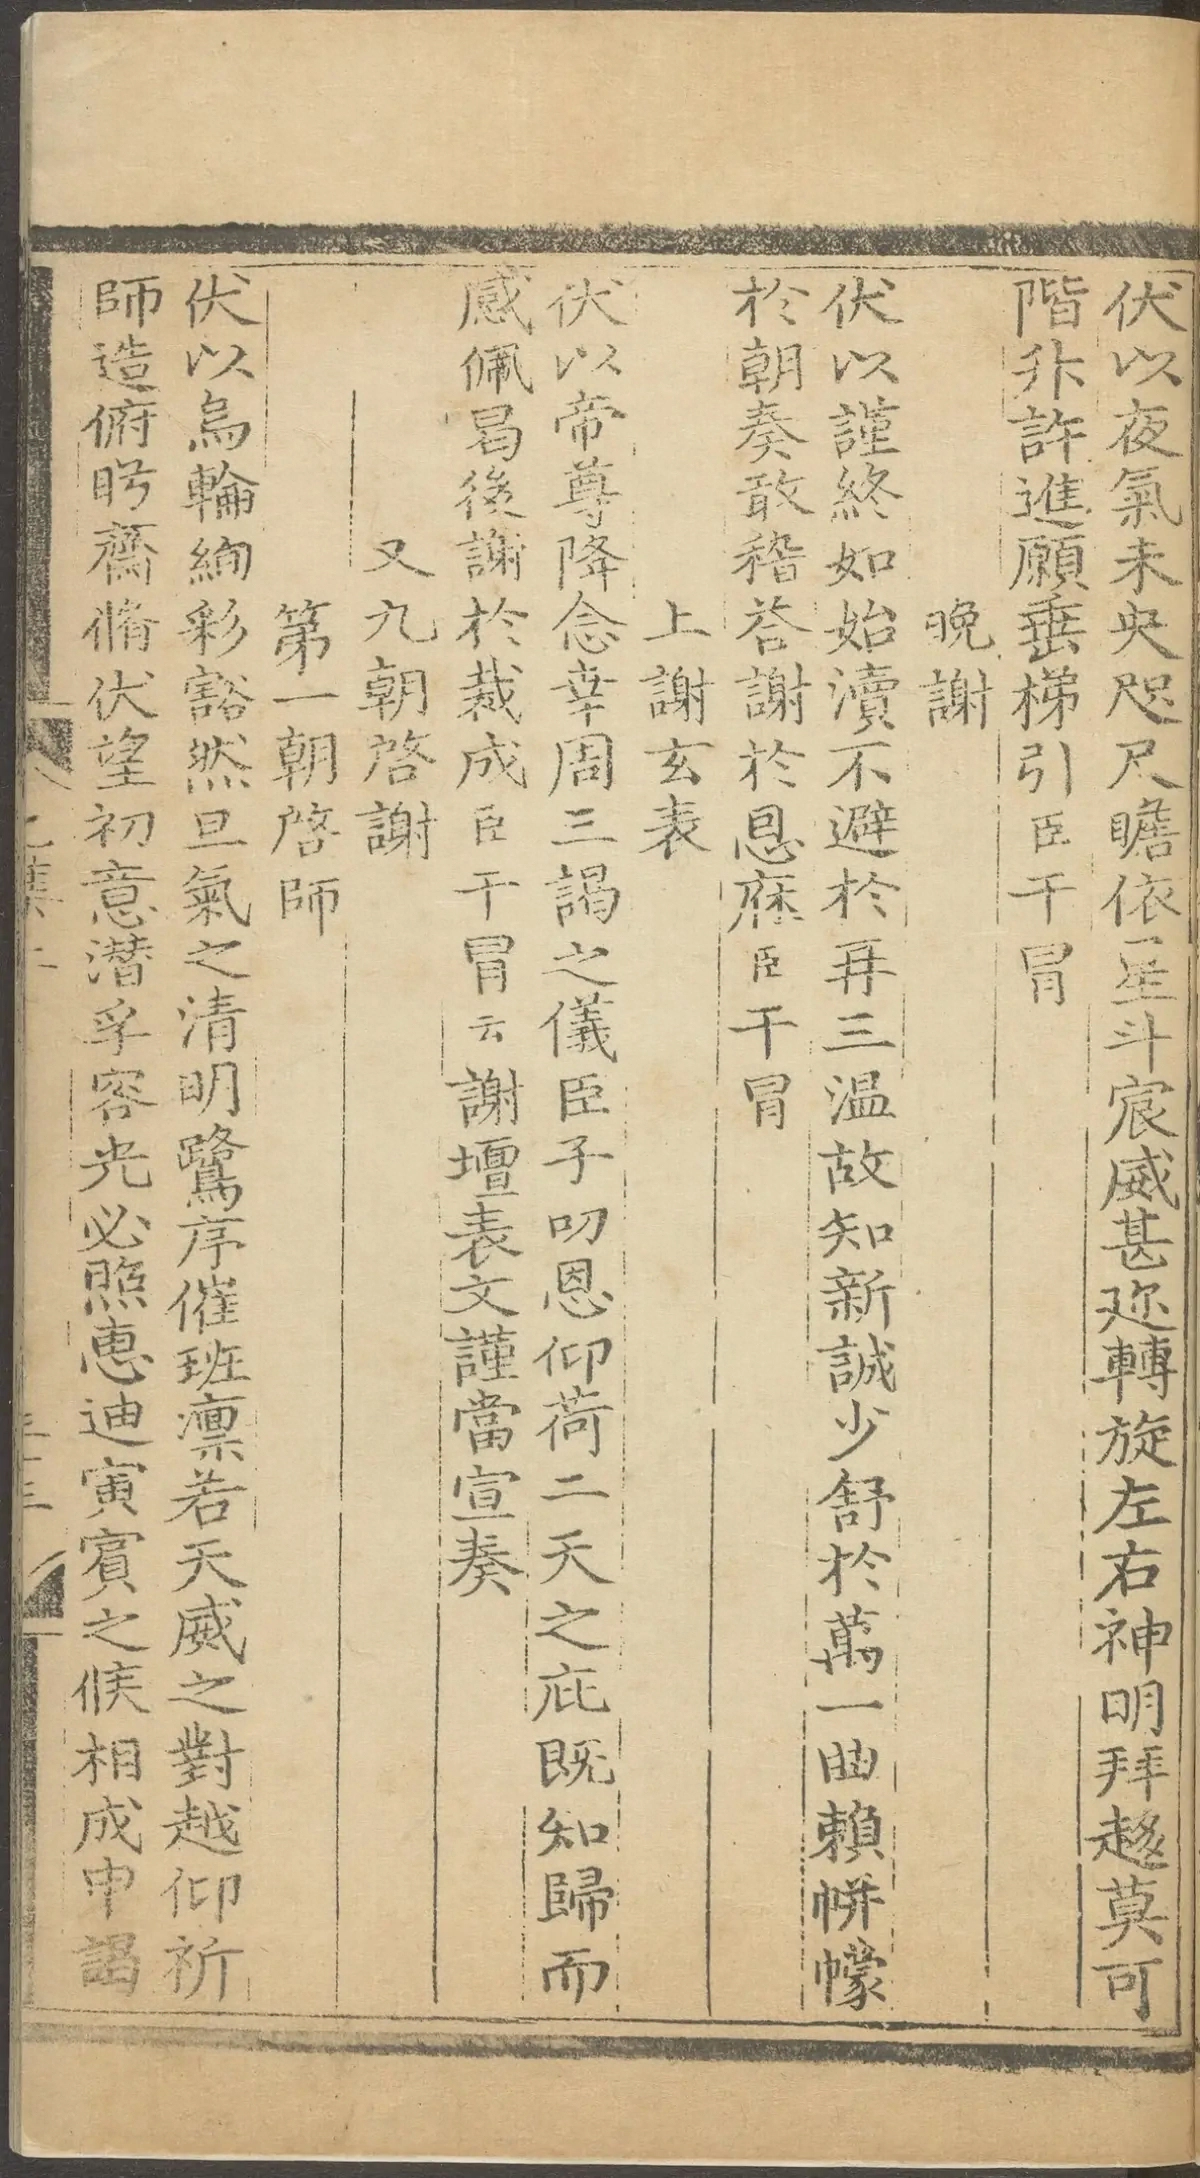 伏以夜氣未央咫尺瞻依星斗宸威甚迩轉旋左右神明拜趍莫可
階升許進願垂梯引臣干冒
晚謝
伏以謹終如始瀆不避於再三温故知新誠少舒於萬一曲賴帡幪
於朝奏敢稽荅謝於恩庥臣干冒
上謝玄表
伏以帝尊降念幸周三謁之儀臣子叨恩仰荷二天之庇既知歸而
感佩曷後謝於裁成臣干冒云謝壇表文謹當宣奏
又九朝啓謝
第一朝啓師
伏以烏輪絢彩豁然旦氣之清明鷺序催班凛若天威之對越仰祈
師造俯眄齋脩伏望初意潛孚容光必照惠迪寅賓之候相成申謁